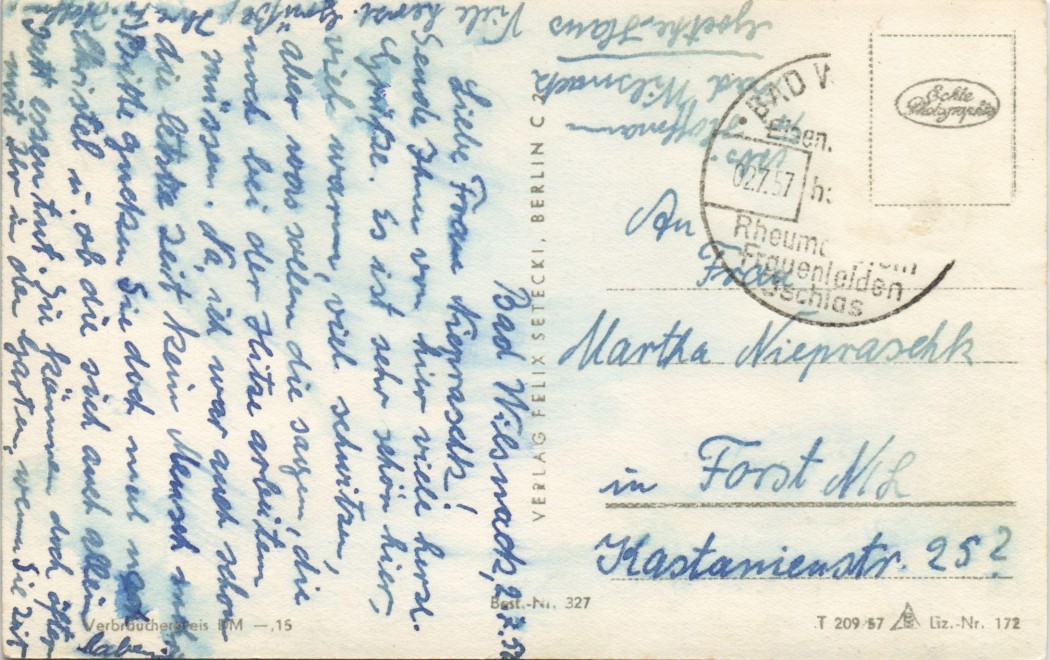 Bad Wilsnack, 2.7.57
Liebe Frau Niepraschk!
Sende Ihnen von hier viele herzl.
Grüße. Es ist sehr schön hier,
viel warm, viel schwitzen,
aber was sollen die sagen, die
noch bei der Hitze arbeiten
müssen. Na, ich war auch schon
die letzte Zeit kein Mensch
Bitte gucken Sie doch mal nach
Christel u. ob die sich auch allein
satt essen tut. Sie können doch öfter
mit ihr in den Garten, wenn Sie Zeit
haben
Viele herzl. Grüße
Ihre Fr. Hoffm.
Goethe-Haus
Bad Wilsnack
Hoffmann
Echte
Photographie
BAD W
Eisen.
02.7.57
Rheuma
Frauenleiden
Ischias
An
Frau
Martha Niepraschk
in Forst N/L
Kastanienstr. 25?
VERLAG FELIX SETECKI, BERLIN C 2
Best.-Nr. 327
Verbraucherpreis DM —,15
T 209 57 Liz.-Nr. 172